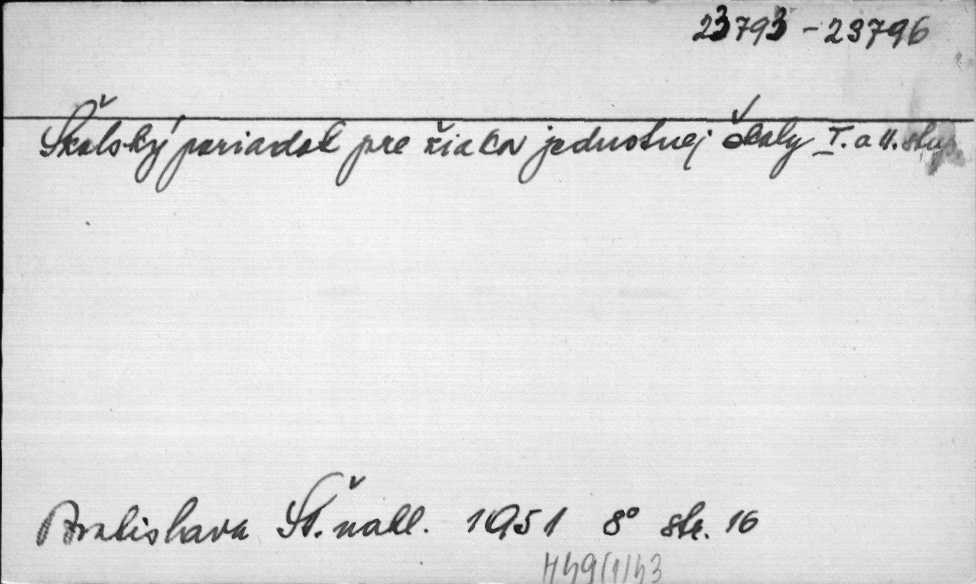 23793-23796
Školský poriadok pre žiakov jednotnej školy I. a II. stup.
Bratislava Št. nakl. 1951 8° str. 16